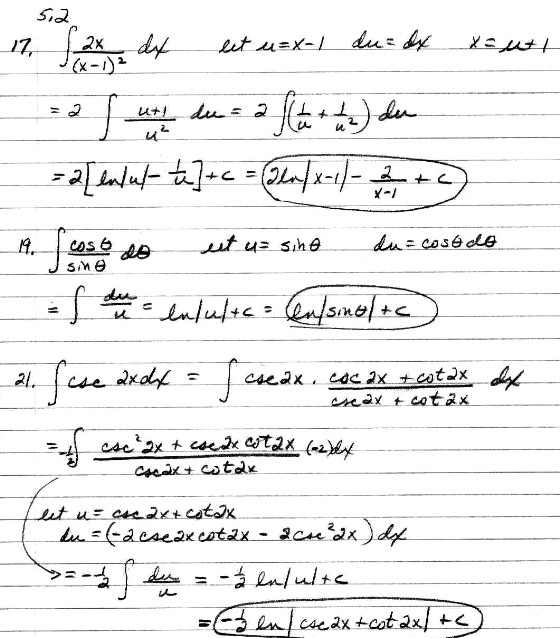 5.2
17. ∫ 2x/(x-1)² dx let u = x-1 du = dx x = u+1
= 2 ∫ (u+1)/u² du = 2 ∫(1/u + 1/u²) du
= 2[ln|u| - 1/u] + c = 2ln|x-1| - 2/(x-1) + c
19. ∫ cosθ/sinθ dθ let u = sinθ du = cosθ dθ
= ∫ du/u = ln|u| + c = ln|sinθ| + c
21. ∫ csc 2x dx = ∫ csc 2x · (csc 2x + cot 2x)/(csc 2x + cot 2x) dx
= -1/2 ∫ (csc² 2x + csc 2x cot 2x)/(csc 2x + cot 2x) (-2) dx
let u = csc 2x + cot 2x
du = (-2 csc 2x cot 2x - 2 csc² 2x) dx
= -1/2 ∫ du/u = -1/2 ln|u| + c
= -1/2 ln|csc 2x + cot 2x| + c